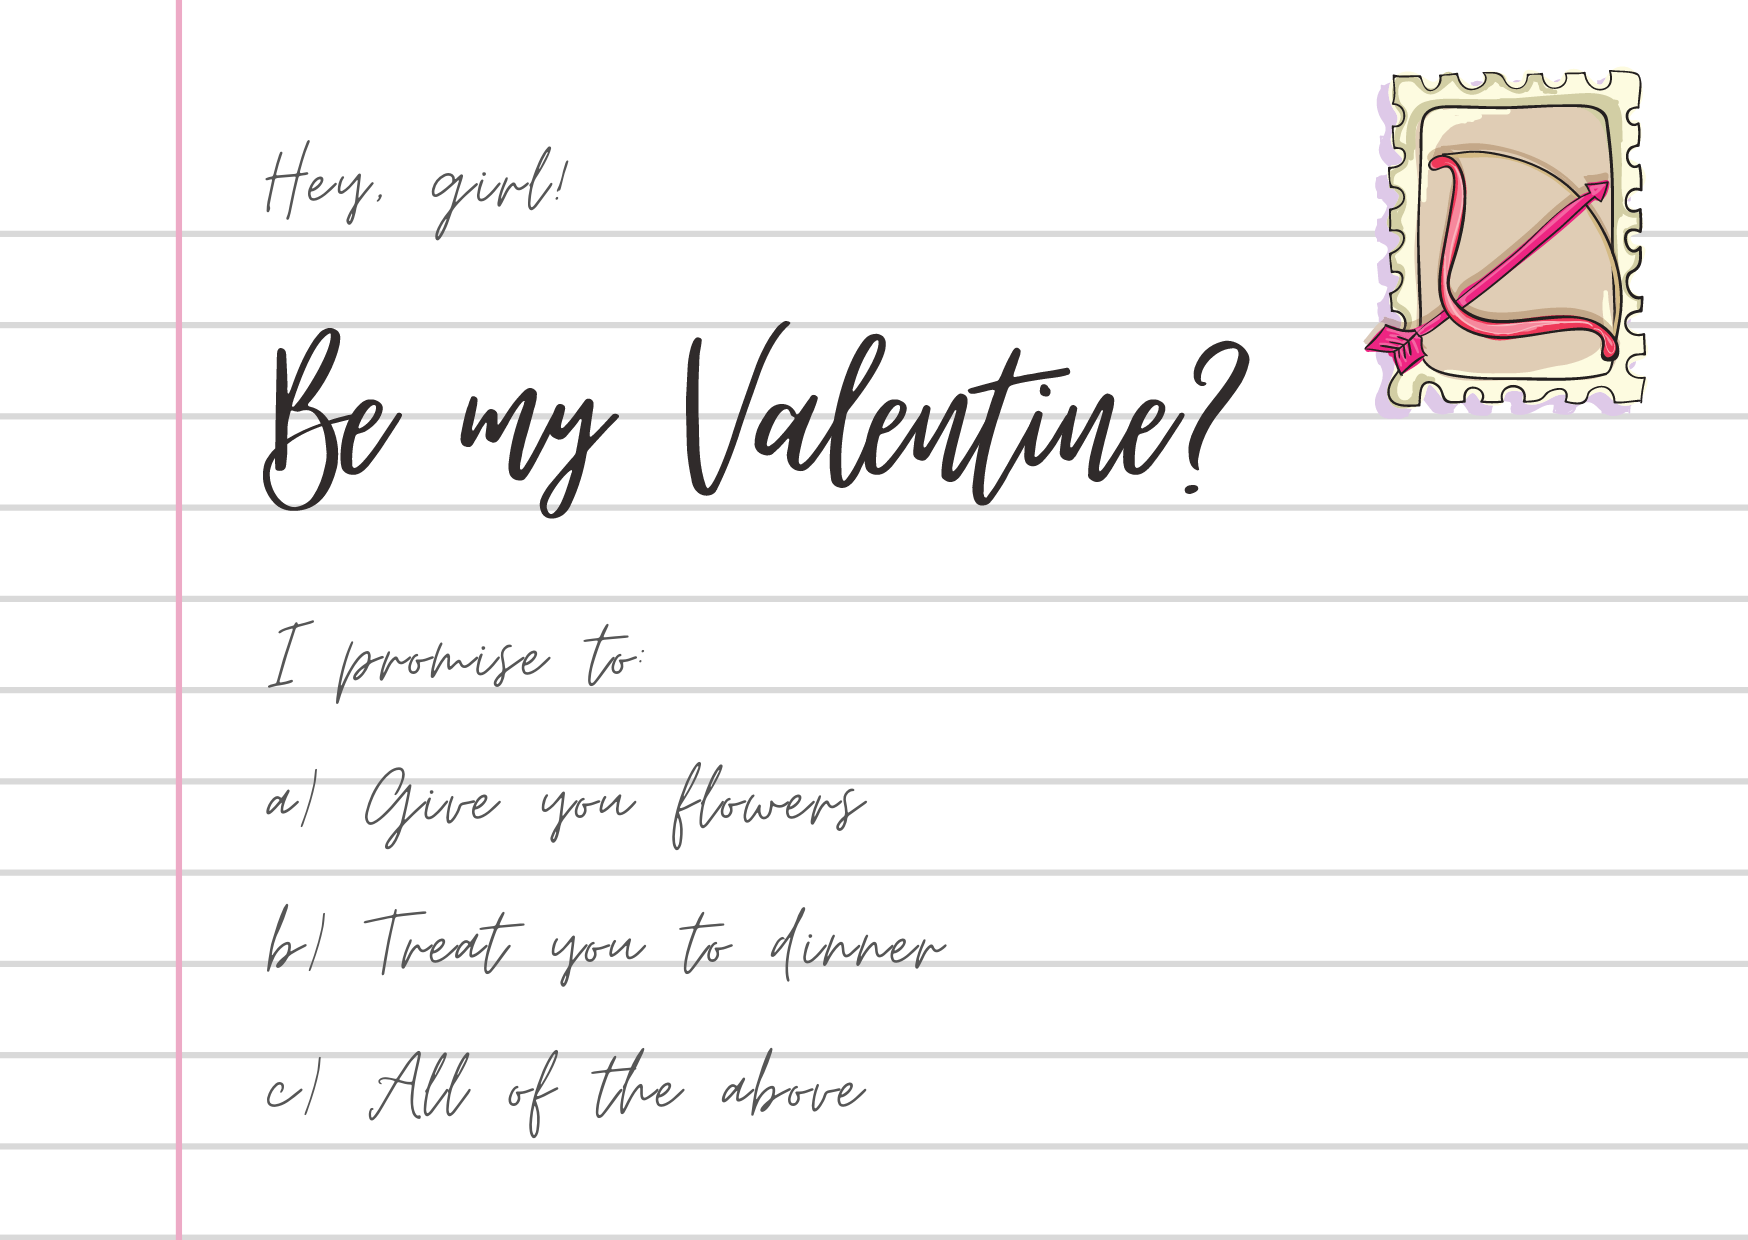 Hey, girl!
Be my Valentine?
I promise to:
a) Give you flowers
b) Treat you to dinner
c) All of the above